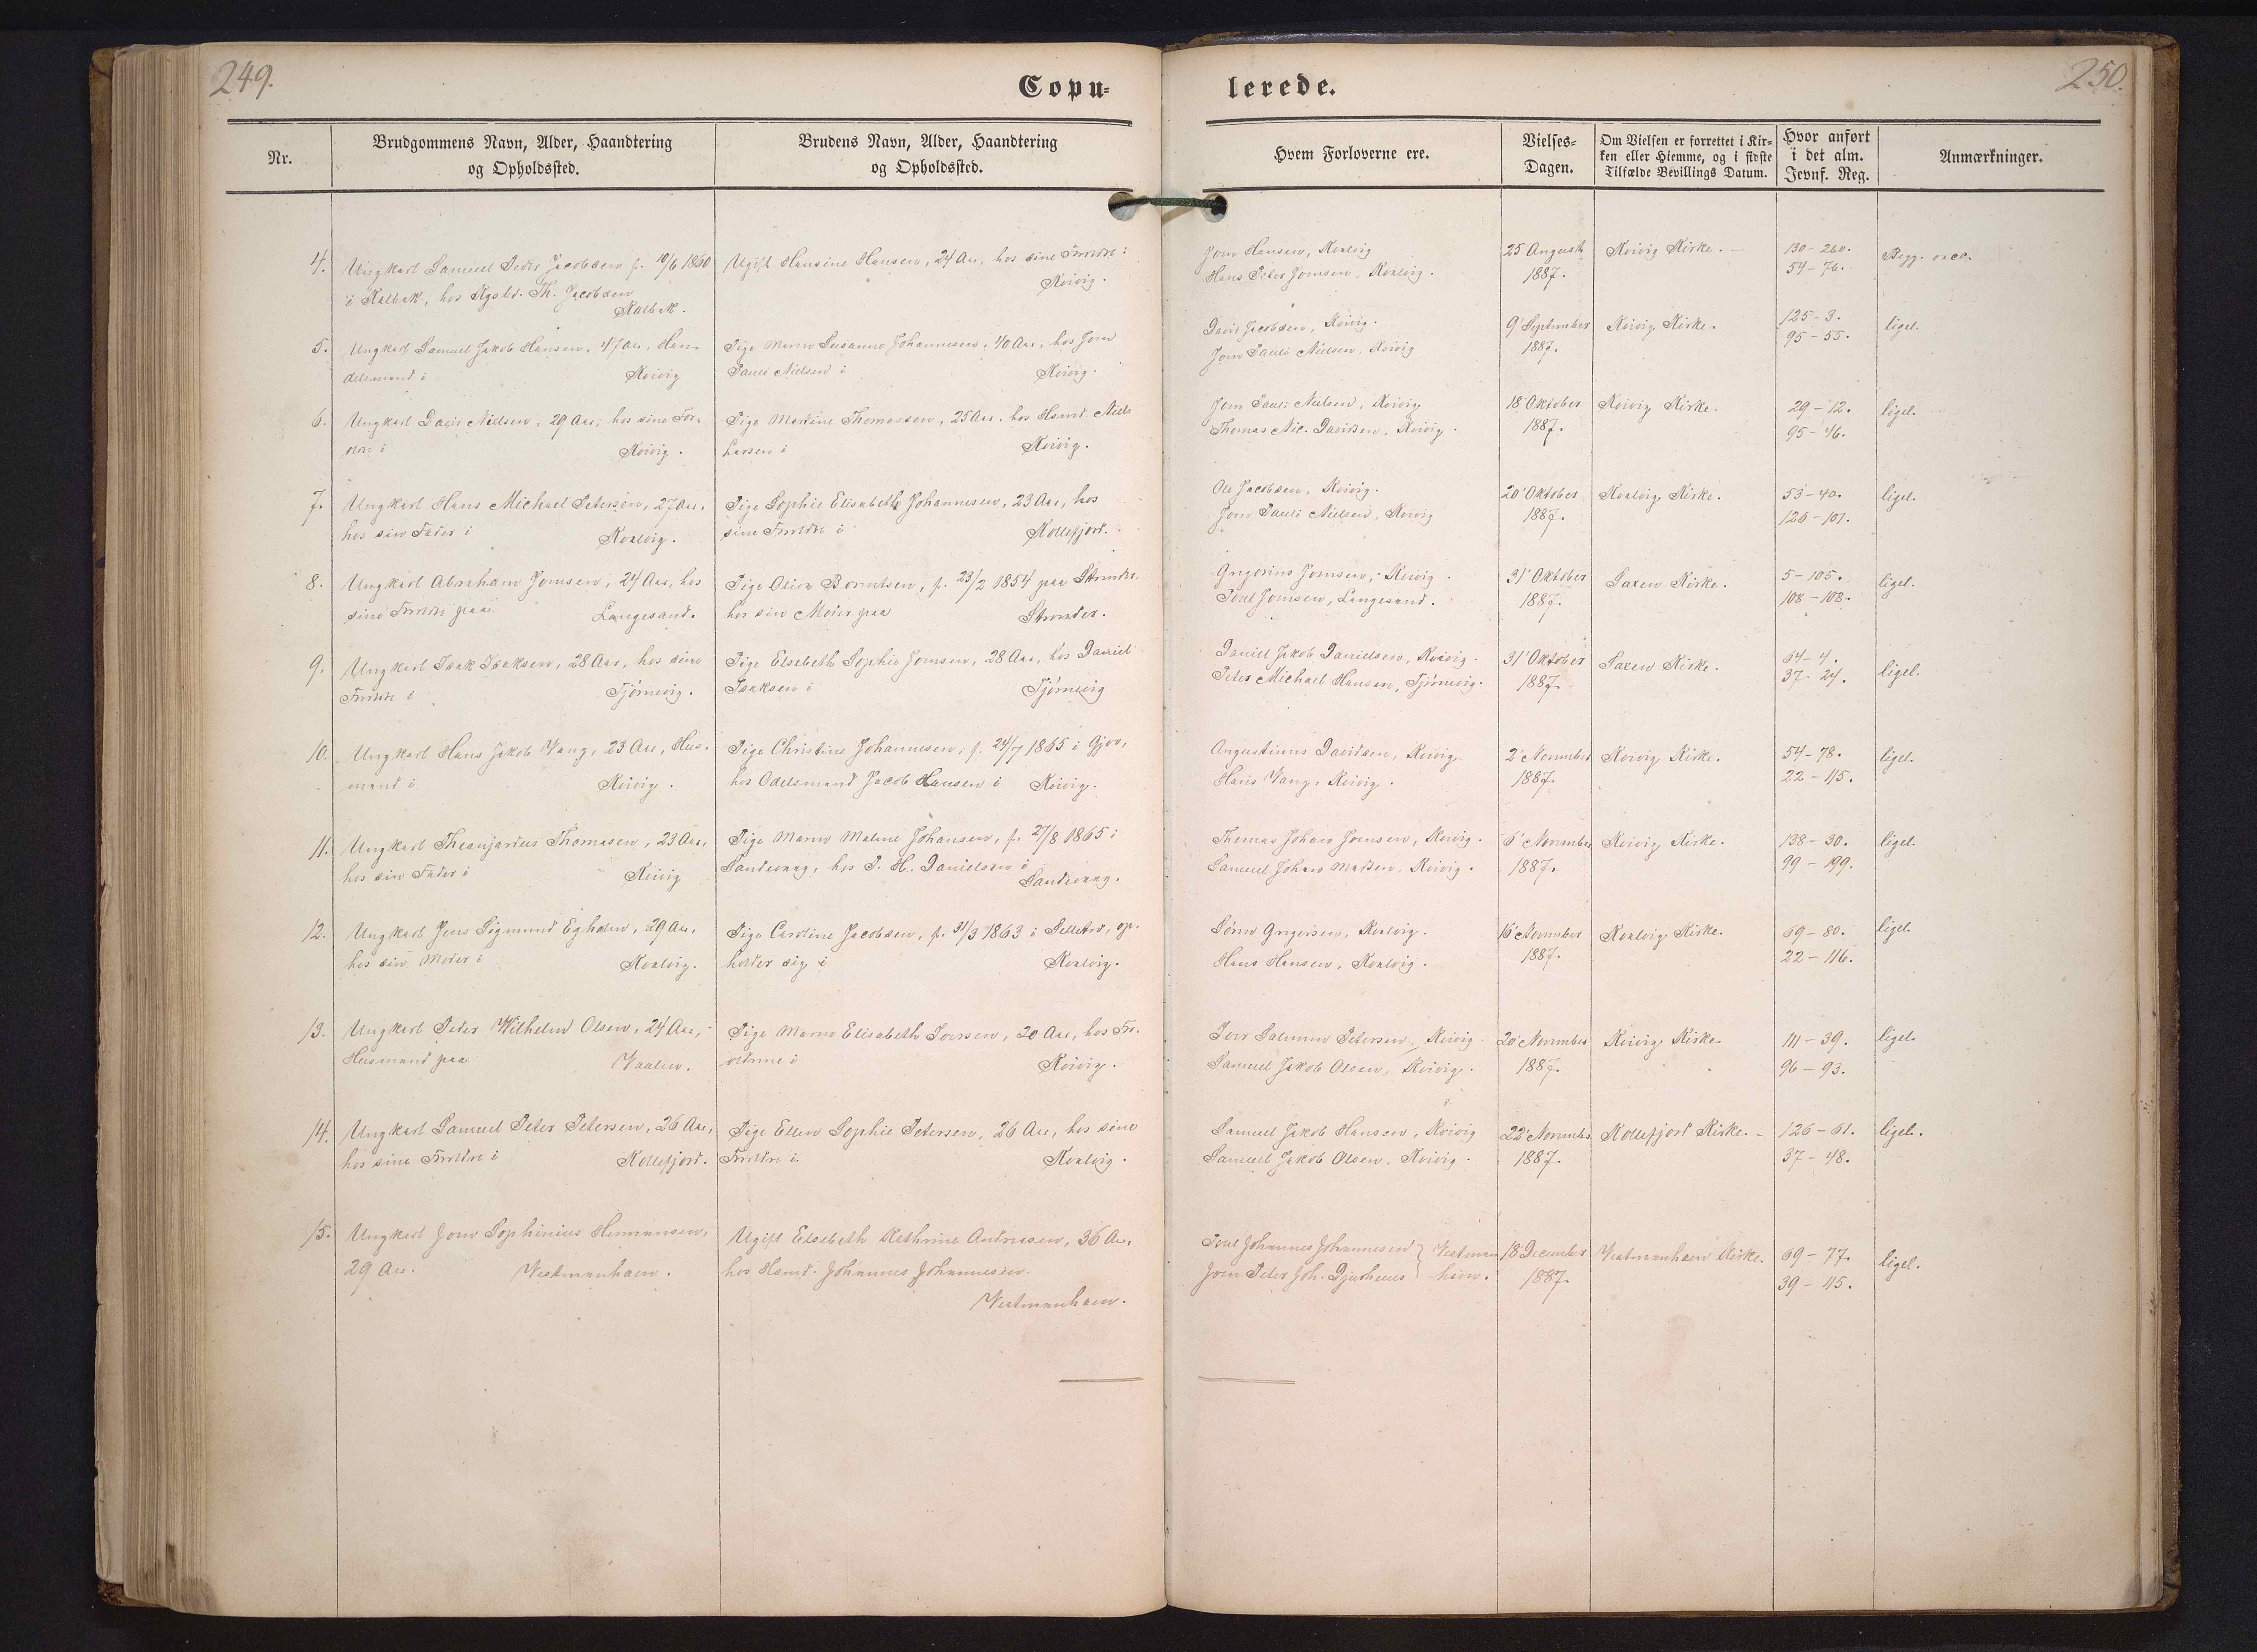 249.
Copu-
lerede.
250.
Nr.
Brudgommens Navn, Alder, Haandtering
og Opholdssted.
Brudens Navn, Alder, Haandtering
og Opholdssted.
Hvem Forloverne ere.
Vielses-
Dagen.
Om Vielsen er forrettet i Kir-
ken eller Hiemme, og i sidste
Tilfælde Bevillings Datum.
Hvor anført
i det alm.
Jevnf. Reg.
Anmærkninger.
4.
Ungkarl Samuel Peder Jacobsen f. 10/6 1860
i Kalbak, hos Kgsbd. Th. Jacobsen
Kalbak.
Ugift Hansine Hansen, 24 Aar, hos sine Forældre i
Kvivig.
Joen Hansen, Kvalvig
Hans Peter Joensen, Kvalvig.
25 August
1887.
Kvivig Kirke.
130-260.
54-76.
Begg. vacc.
5.
Ungkarl Samuel Jakob Hansen, 47 Aar, Han-
delsmand i Kvivig
Pige Maren Susanne Johannesen, 40 Aar, hos Joen
Pauli Nielsen i Kvivig.
David Jacobsen, Kvivig.
Joen Pauli Nielsen, Kvivig
9' September
1887.
Kvivig Kirke.
125-3.
95-55.
ligel.
6.
Ungkarl David Nielsen, 29 Aar, hos sine For-
ældre i Kvivig.
Pige Martine Thomassen, 25 Aar, hos Hsmd. Niels
Larsen i Kvivig.
Joen Pauli Nielsen, Kvivig
Thomas Nic. Davidsen, Kvivig.
18' Oktober
1887.
Kvivig Kirke.
29-12.
95-46.
ligel.
7.
Ungkarl Hans Michael Petersen, 27 Aar,
hos sin Fader i Kvalvig.
Pige Sophie Elisabeth Johannesen, 23 Aar, hos
sine Forældre i Kollefjord.
Ole Jacobsen, Kvivig.
Joen Pauli Nielsen, Kvivig
20' Oktober
1887.
Kvalvig Kirke.
53-40.
126-107.
ligel.
8.
Ungkarl Abraham Joensen, 24 Aar, hos
sine Forældre paa Langesand.
Pige Olivia Berentsen, f. 23/2 1854 paa Strænder.
hos sin Moder paa Strænder.
Gregorius Joensen, Kvivig.
Poul Joensen, Langesand.
31' Oktober
1887.
Saxen Kirke.
5-105.
108-108.
ligel.
9.
Ungkarl Isak Isaksen, 28 Aar, hos sine
Forældre i Tjørnevig.
Pige Elsebeth Sophie Joensen, 28 Aar, hos Daniel
Isaksen i Tjørnevig
Daniel Jakob Danielsen, Kvivig.
Peter Michael Hansen, Tjørnevig.
31' Oktober
1887.
Saxen Kirke.
64-4.
37-24.
ligel.
10.
Ungkarl Hans Jakob Vang, 23 Aar, Hus-
mand i Kvivig.
Pige Christine Johannesen, f. 24/7 1865 i Gjov,
hos Odelsmand Jacob Hansen i Kvivig.
Augustinus Davidsen, Kvivig
Hans Vang, Kvivig.
2' November
1887.
Kvivig Kirke.
54-78.
22-115.
ligel.
11.
Ungkarl Theanjarius Thomasen, 23 Aar,
hos sin Fader i Kvivig
Pige Maren Maline Johansen, f. 27/8 1865 i
Sandevaag, hos P. H. Danielsen i
Sandevaag.
Thomas Johan Joensen, Kvivig.
Samuel Johan Madsen, Kvivig.
6' November
1887.
Kvivig Kirke.
138-30.
99-199.
ligel.
12.
Ungkarl Jens Sigmund Egholm, 29 Aar,
hos sin Moder i Kvalvig.
Pige Caroline Jacobsen, f. 31/3 1863 i Selletræ, op-
holder sig i Kvalvig.
Søren Gregersen, Kvalvig.
Hans Hansen, Kvalvig.
16' November
1887.
Kvalvig Kirke.
69-80.
22-116.
ligel.
13.
Ungkarl Peder Wilhelm Olsen, 24 Aar,
Husmand paa Vaalen.
Pige Maren Elisabeth Iversen, 20 Aar, hos For-
ældrene i Kvivig.
Iver Salomon Petersen, Kvivig
Samuel Jakob Olsen, Kvivig.
20' November
1887.
Kvivig Kirke.
111-39.
96-93.
ligel.
14.
Ungkarl Samuel Peter Petersen, 26 Aar,
hos sine Forældre i Kollefjord.
Pige Ellen Sophie Petersen, 26 Aar, hos sine
Forældre i Kvalvig.
Samuel Jakob Hansen, Kvivig
Samuel Jakob Olsen, Kvivig.
22' Novembr
1887.
Kollefjord Kirke.
126-61.
37-48.
ligel.
15.
Ungkarl Joen Sophinius Hermansen,
29 Aar. Vestmanhavn.
Ugift Elsebeth Kathrine Andreasen, 36 Aar,
hos Hsmd. Johannes Johannesen
Vestmanhavn.
Poul Johannes Johannesen } Vestman
Joen Peter Joh. Djurhuus } havn.
18' December
1887.
Vestmanhavn Kirke.
69-77.
39-45.
ligel.